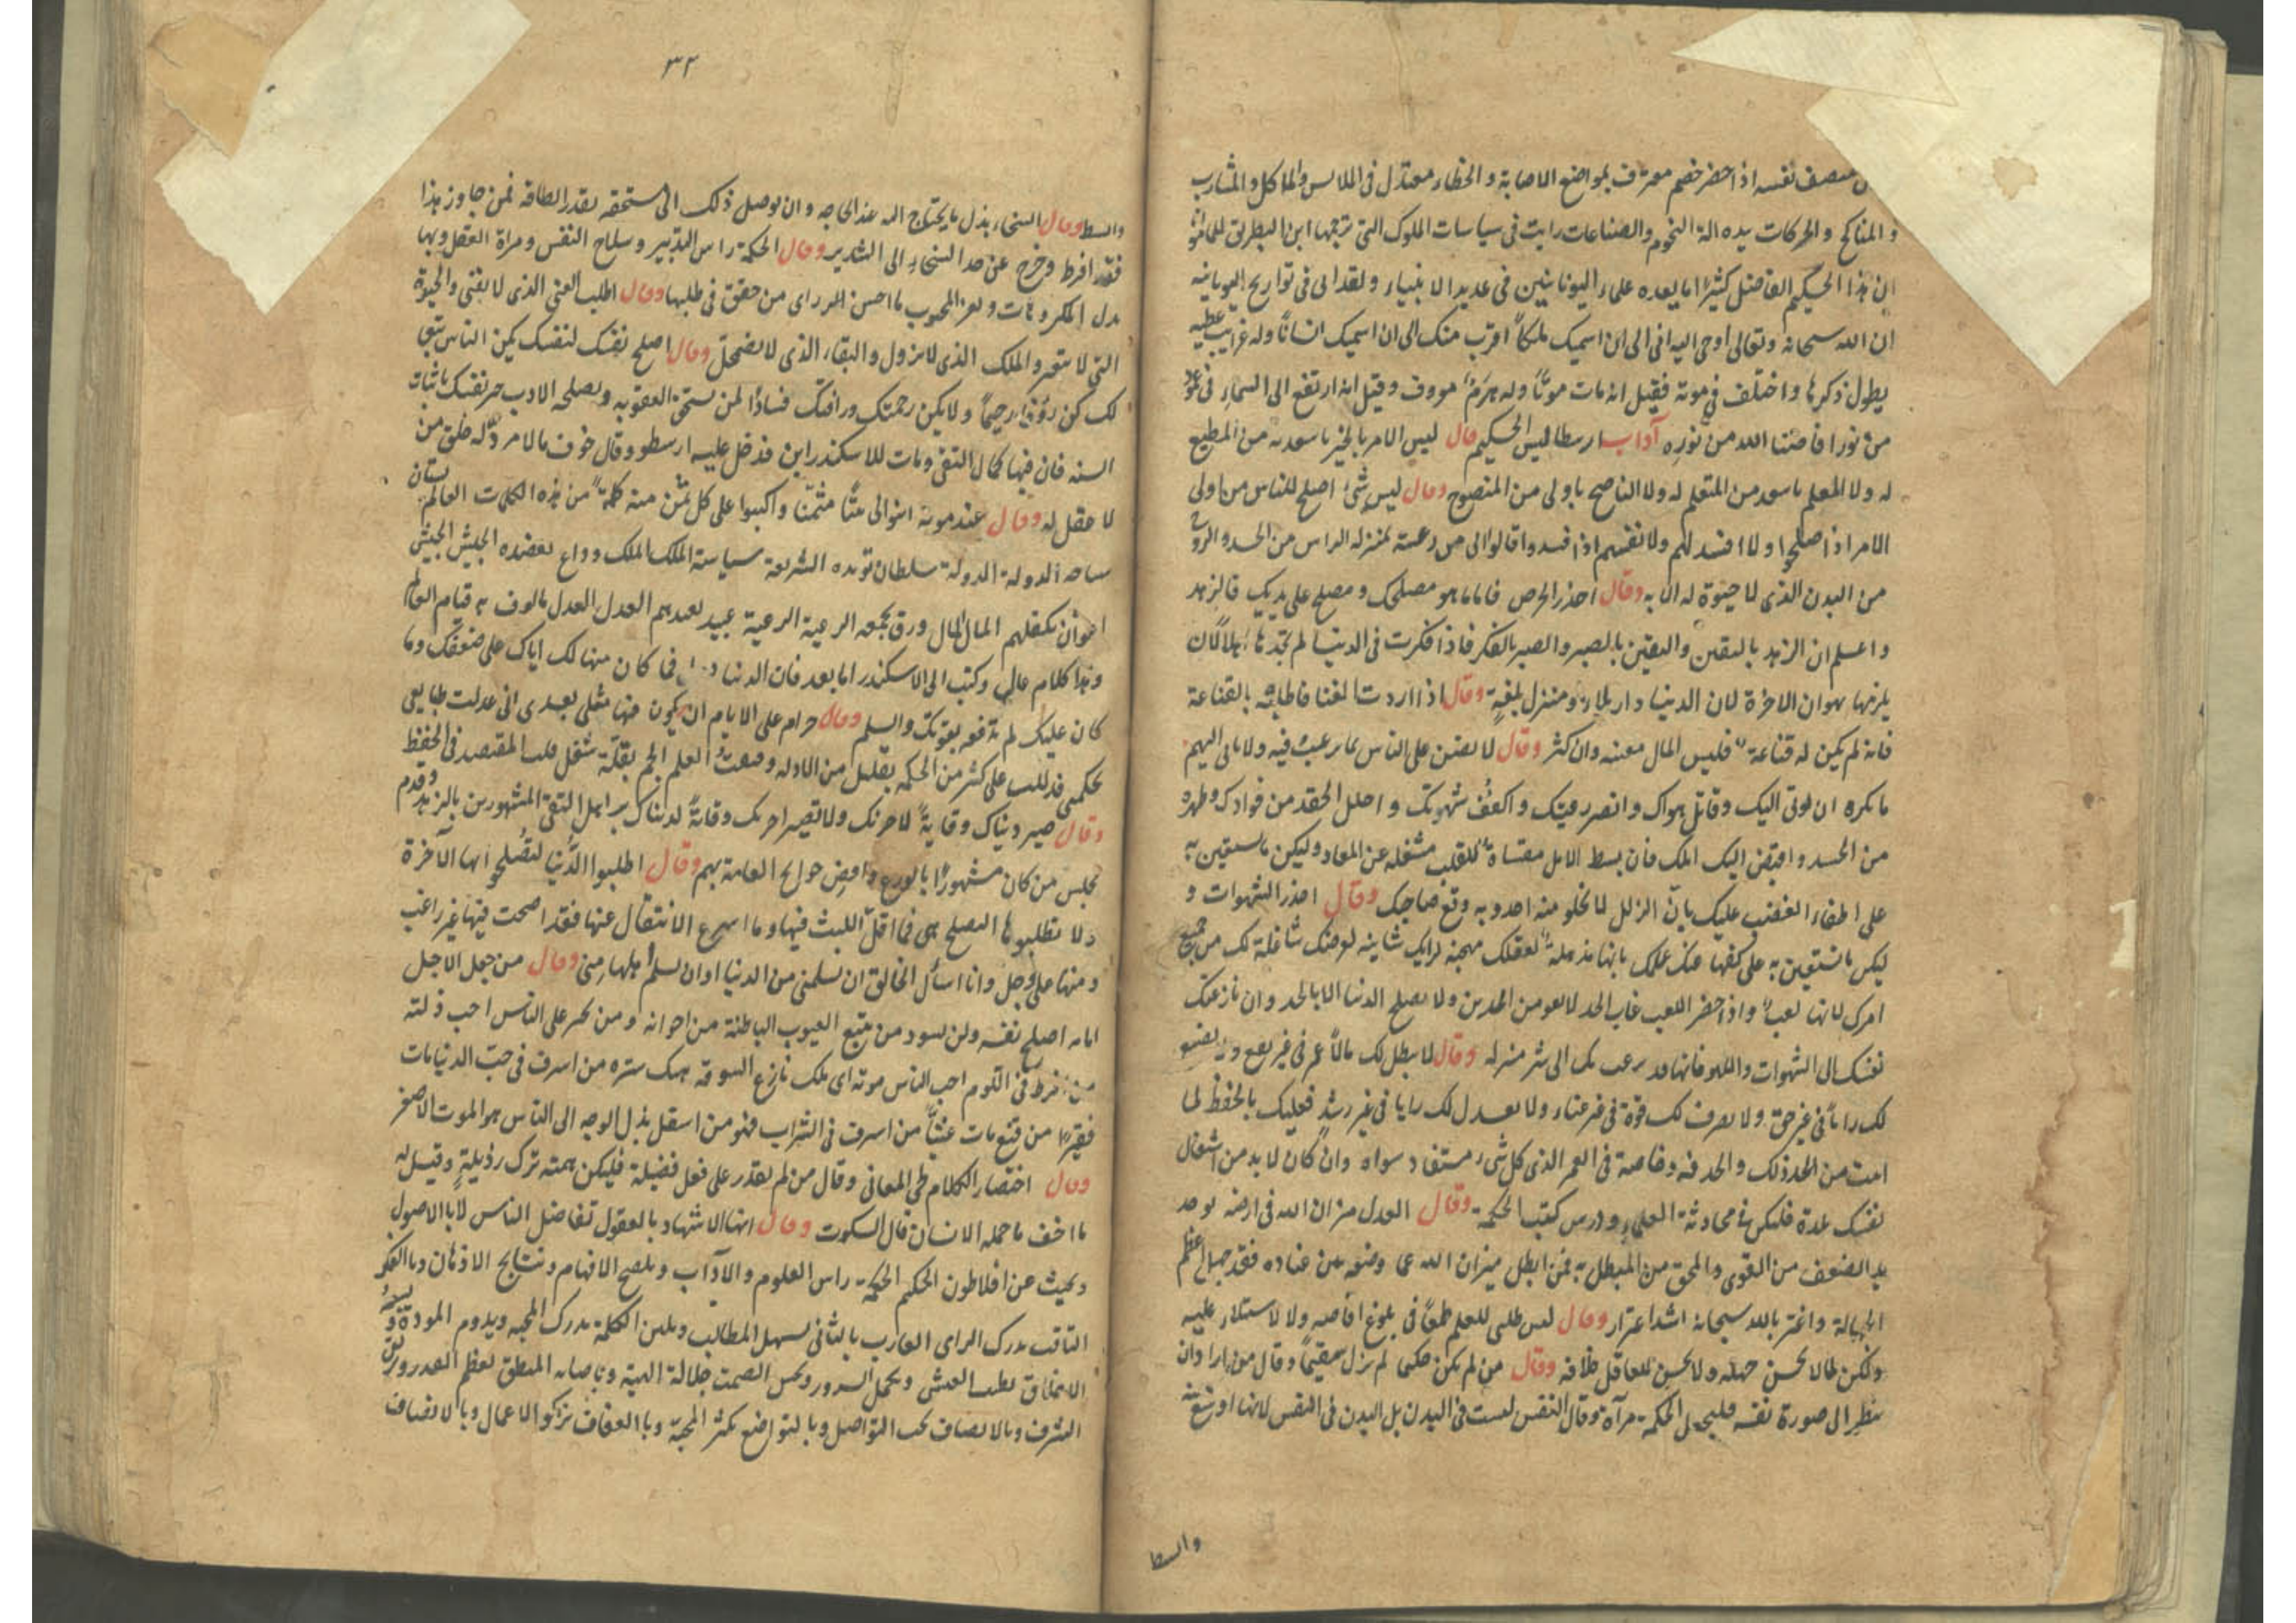 منصف نفسه اذا حضر خصم معترف بمواضع الاصابة والخطاء معتدل فى الملابس والماكل والمشارب
والمناكح والحركات بيده الة النجوم والصناعات رايت فى سياسات الملوك التى ترجمها ابن البطريق للمامون
ان هذا الحكيم الفاضل كثيرًا ما يعده علماء اليونانيين فى عديد الانبياء ولقد الى فى تواريخ اليونانية
ان الله سبحانه وتعالى اوحى اليه انى الى ان اسميك ملكًا اقرب منك الى ان اسميك انسانًا وله غرايب عظيمة
يطول ذكرها واختلف فى موته فقيل انه مات موتًا وله هرم معروف وقيل انه ارتفع الى السماء فى عمود
من نور افاضنا الله من نوره آداب ارسطاليس الحكيم قال ليس الامر بالخير باسعد به من المطيع
له ولا المعلم باسعد من المتعلم له ولا الناصح باولى من المنصوح وقال ليس شئ اصلح للناس من اولى
الامر اذا صلحوا ولا افسد لهم ولانفسهم اذا فسدوا فالوالى من رعيته بمنزلة الراس من الجسد والروح
من البدن الذى لا حيوة له الا به وقال احذر الحرص فاما ما هو مصلحك ومصلح على يديك فالزهد
واعلم ان الزهد باليقين واليقين بالصبر والصبر بالفكر فاذا فكرت فى الدنيا لم تجدها اهلا لان
يكرمها بهوان الاخرة لان الدنيا دار بلاء ومنزل بلغة وقال اذا اردت الغنا فاطلبه بالقناعة
فانه لم يكن له قناعة فليس المال مغنيه وان كثر وقال لا تضنن على الناس بما يرغب فيه ولا تاتى اليهم
ما تكره ان يوتى اليك وقاتل هواك واقصر رغبتك واكفف شهوتك واحلل الحقد من فوادك وطهره
من الحسد واقبض اليك املك فان بسط الامل مقساة للقلب مشغلة عن المعاد وليكن ما تستعين به
على اطفاء الغضب عليك بانّ الزلل لا يخلو منه احد وبه وقع صاحبك وقال احذر الشهوات و
ليكن ما تستعين به على كفها عنك علمك بانها مذهلة لعقلك مهجنة لرايك شاينة لعرضك شاغلة لك من جميع
امرك لانها لعب واذا حضر اللعب غاب الجد لا يقوم الدين ولا يصلح الدنيا الا بالجد وان نازعتك
نفسك الى الشهوات واللهو فانها قد نزعت بك الى شر منزلة وقال لا يبطل لك مالًا عم فى غير نفع ولا يضيع
لك راياً فى غير حق ولا تصرف لك قوة فى غير عناء ولا تعدل لك رايا فى غير رشد فعليك بالحفظ لما
اتيت من الخد ذلك والجد فيه وخاصة فى العمر الذى كل شئ مستفاد سواه وان كان لا بد من اشتغال
نفسك بلذة فليكن فى محادثة العلماء ودرس كتب الحكمة وقال العدل ميزان الله فى ارضه يوخذ
به الضعف من القوى والمحق من المبطل به فمن ابطل ميزان الله عما وضعه بين عباده فقد جهل اعظم
الجهالة واغتر بالله سبحانه اشد اغترار وقال ليس طلبى للعلم طمعًا فى بلوغ اقاصيه ولا لاستيلاء عليه
ولكن طالا يحسن جهله ولا يحسن للعاقل خلافه وقال من لم يكن حكيما لم يزل سقيمًا وقال من اراد ان
ينظر الى صورة نفسه فليجعل الحكمة مرآة وقال النفس ليست فى البدن بل البدن فى النفس لانها اوسع منه
والبسط
٣٢
وابسط وقال السخاء بذل ما يحتاج اليه عند الحاجة وان يوصل ذلك الى مستحقه بقدر الطاقة فمن جاوز هذا
فقد افرط وخرج عن حد السخاء الى التبذير وقال الحكمة راس التدبير وسلاح النفس ومراة العقل وبها
يذل المكروهات ويعز المحبوب ما احسن المرء راى من حقق فى طلبها وقال اطلب الغنى الذى لا يفنى والحيوة
التى لا تتغير والملك الذى لا يزول والبقاء الذى لا يضمحل وقال اصلح نفسك لنفسك يكن الناس تبعا
لك كن رؤوفا رحيمًا ولا يكن رحمتك ورافتك فسادًا لمن يستحق العقوبة ويصلحه الادب خر نفسك باثبات
السنة فان فيها كمال التقى ومات للاسكندر ابن فدخل عليه ارسطو وقال خوف ما لا مردّ له خلق من
لا عقل له وقال عند موته ابنوا لى بيتًا مثمّنا واكتبوا على كل ثمن منه كلمة من هذه الكلمات العالم بستان
سياجه الدولة الدولة سلطان تؤيده الشريعة الشريعة سياسة الملك الملك وداع يعضده الجيش الجيش
اعوان تكفلهم المال المال ورق يجمعه الرعية الرعية عبيد تعبدهم العدل العدل مالوف به قيام العالم
وهذا كلام عالى وكتب الى الاسكندر اما بعد فان الدنيا دول فما كان منها لك اياك على ضعفك وما
كان عليك لم تدفعه بقوتك والسلم وقال حرام على الايام ان يكون فيها مثلى بعدى انى عدلت طبايعى
بحكمتى فدللت على كثير من الحكمة بقليل من الادلة وضعت العلم الجم بقلّة شغل قلب المقتصد فى الحفظ
وقال صير دنياك وقاية لاخرتك ولا تصير اخرتك وقاية لدنياك بر اهل التقى المشهورين بالزهد وقدم
مجلس من كان مشهورًا بالورع وامض حوايج العامة بهم وقال اطلبوا الدُّنيا لتُصلحوا بها الآخرة
ولا تطلبوها ليصلح هى فما اقلّ اللبث فيها وما اسرع الانتقال عنها فقد اصحت فيها غير راغب
ومنها على وجل وانا اسأل الخالق ان يسلمنى من الدنيا او ان يسلم اهلها منى وقال من جعل الاجل
امامه اصلح نفسه ولن يسود من يتبع العيوب الباطنة من اخوانه ومن تجبر على الناس احب ذلته
من افرط فى اللوم احب الناس موته اى ملك نازع السوقة هتك ستره من اسرف فى حبّ الدنيا مات
فقيرًا من قنع مات غنيًّا من اسرف فى الشراب فهو من السفل بذل الوجه الى الناس هو الموت الاصغر
وقال اختصار الكلام طى المعانى وقال من لم يقدر على فعل فضيلة فليكن همته ترك رذيلة وقيل له
ما اخف ما حمله الانسان قال السكوت وقال ايها الاشهاد بالعقول تفاضل الناس لا بالاصول
وبحيث عن افلاطون الحكيم الحكمة راس العلوم والآداب وتلقيح الافهام ونتايج الاذهان وبالفكر
الثاقب يدرك الراى العازب بالتأنى تسهل المطالب وبلين الكلمة يدرك المحبة ويدوم المودة
الاخلاق يطيب العيش ويكمل السرور وبحسن الصمت جلالة الهيبة وباصابة المنطق يعظم القدر ويرتقى
الشرف وبالانصاف يجب التواصل وبالتواضع يكثر المحبّة وبالعفاف تزكو الاعمال وبالانصاف